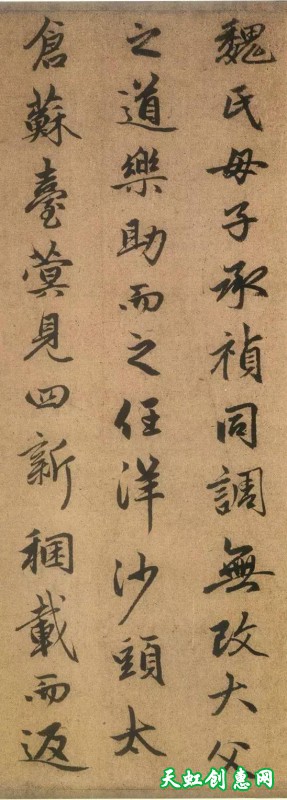 魏氏母子承禎同調無改大父
之道樂助而之任洋沙頭太
倉蘇臺蓂見四新稇載而返
天虹创惠网